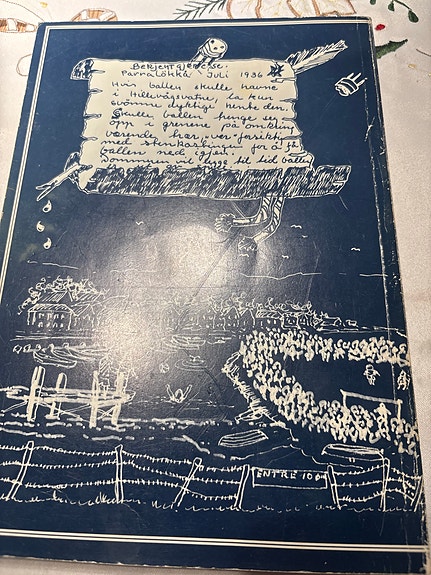 Bekjentgjørelse:
Parraløkkå Juli 1936
Hvis ballen skulle havne
i Hillevågsvatne, la kun
svømme dyktige hente den
Skulle ballen henge seg
opp i grenene på omkring
værende trær, vær forsiktig
med stenkastingen for å få
ballen ned igjen.
Dommeren vil legge til tid
ENTRE 10 ØRE